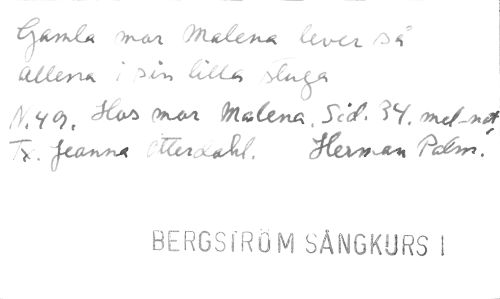 Gamla mor Malena lever så
allena i sin lilla stuga
N.49. Hos mor Malena. Sid. 34. mel-not,
Tx. Jeanna Otterdahl. Herman Palm.
BERGSTRÖM SÅNGKURS I